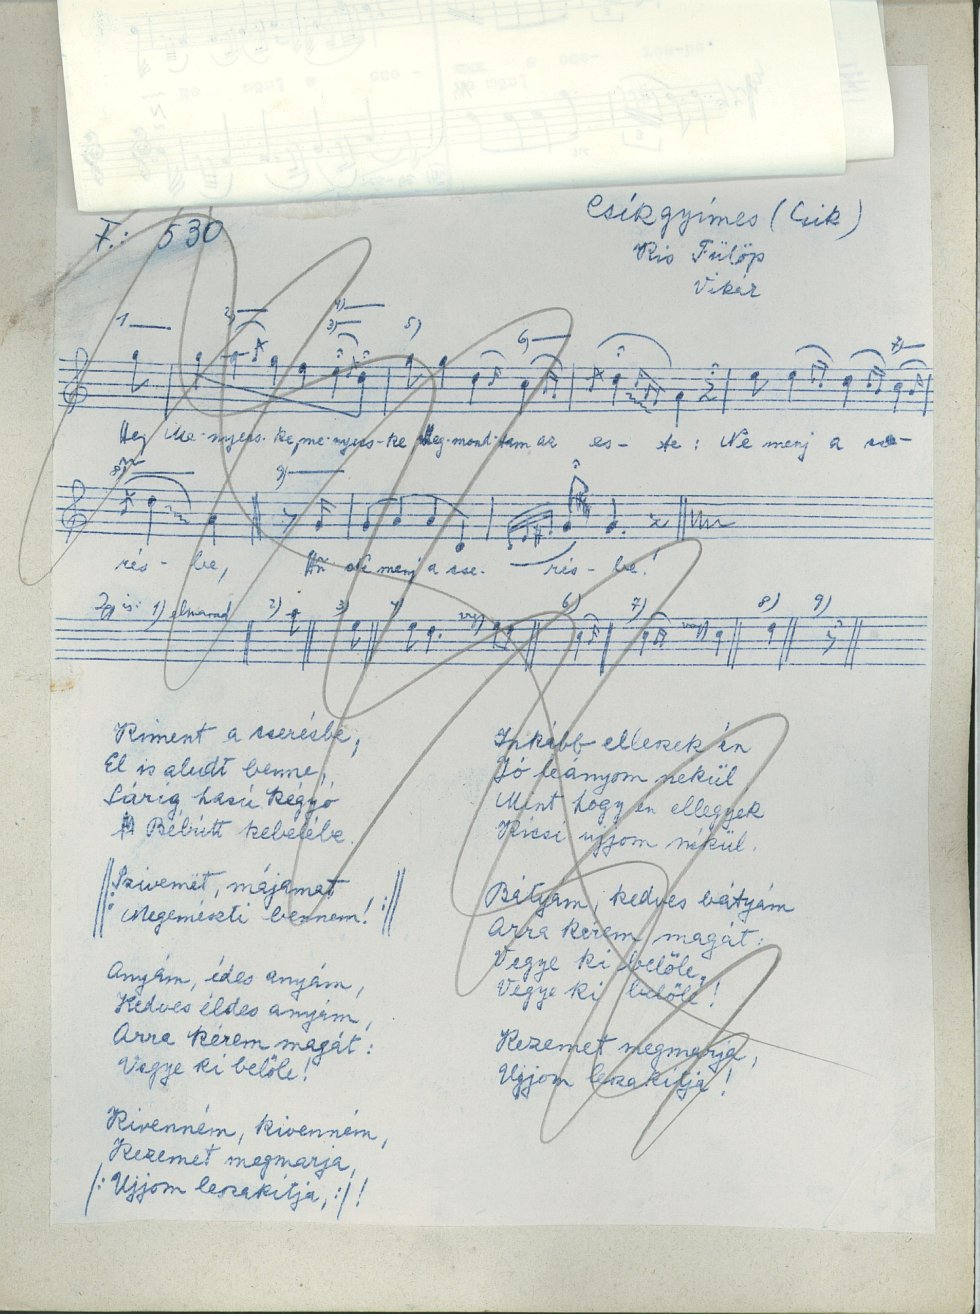 F.: 530
Csíkgyimes (Csik)
Kis Fülöp
Vikár
1 2) 3) 4) 5) 6) 7)
Hej Me-nyecs-ke, me-nyecs-ke, Meg-mond-tam az es-te: Ne menj a cse-
8) 9)
rés-be, Ne menj a cse-rés-be!
1) elmarad 2) 3) 4) vagy 6) 7) vagy 8) 9)
Kiment a cserésbe,
El is aludt benne,
Sárig hasú kégyó
Bébútt kebelébe.
||: Szivemet, májamat
Megemészti bennem! :||
Anyám, édes anyám,
Kedves éldes anyám,
Arra kérem magát:
Vegye ki belőle!
Kivenném, kivenném,
Kezemet megmarja,
/: Ujjom leszakítja, :/!
Inkább elleszek én
Jó leányom nekül
Mint hogy én ellegyek
Kicsi ujjom nékül.
Bátyám, kedves bátyám
Arra kérem magát:
Vegye ki belőle,
Vegye ki belőle!
Kezemet megmarja,
Ujjom leszakítja!